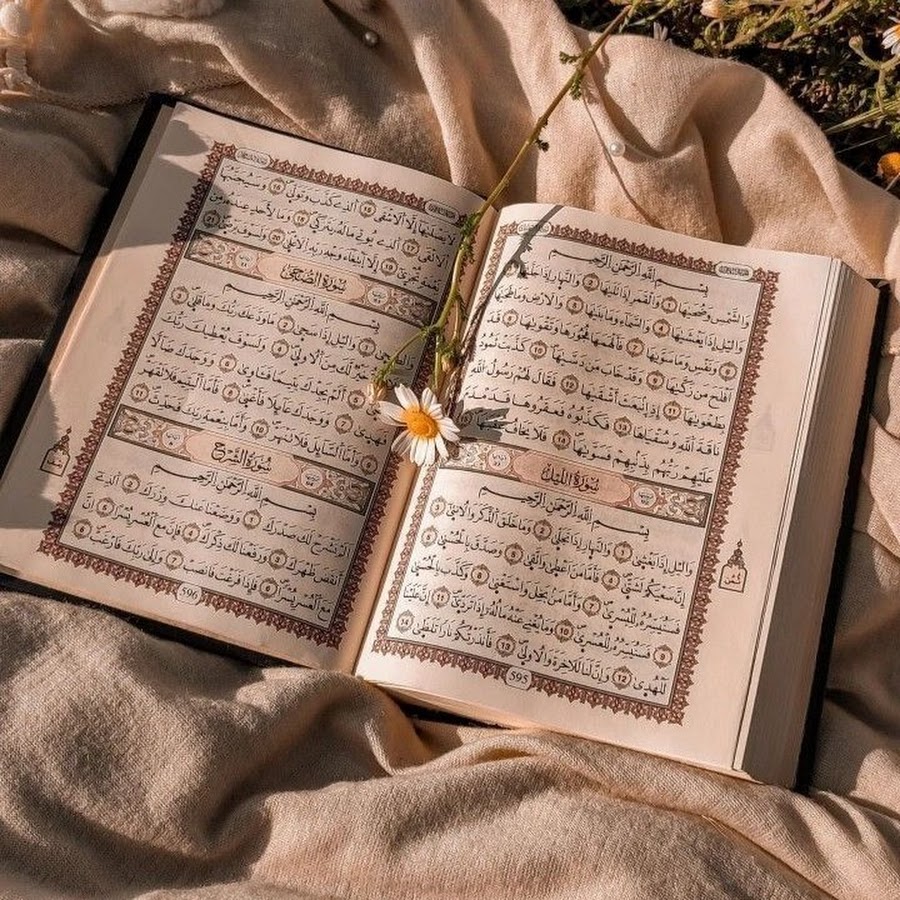 بِسْمِ اللَّهِ الرَّحْمَٰنِ الرَّحِيمِ
وَالشَّمْسِ وَضُحَىٰهَا ١ وَالْقَمَرِ إِذَا تَلَىٰهَا ٢ وَالنَّهَارِ إِذَا جَلَّىٰهَا
وَالَّيْلِ إِذَا يَغْشَىٰهَا 4 وَالسَّمَاءِ وَمَا بَنَىٰهَا 5 وَالْأَرْضِ وَمَا طَحَىٰهَا
6 وَنَفْسٍ وَمَا سَوَّىٰهَا 7 فَأَلْهَمَهَا فُجُورَهَا وَتَقْوَىٰهَا 8 قَدْ
أَفْلَحَ مَن زَكَّىٰهَا 9 وَقَدْ خَابَ مَن دَسَّىٰهَا 10 كَذَّبَتْ ثَمُودُ
بِطَغْوَىٰهَا 11 إِذِ انبَعَثَ أَشْقَىٰهَا 12 فَقَالَ لَهُمْ رَسُولُ اللَّهِ
نَاقَةَ اللَّهِ وَسُقْيَٰهَا 13 فَكَذَّبُوهُ فَعَقَرُوهَا فَدَمْدَمَ
عَلَيْهِمْ رَبُّهُم بِذَنبِهِمْ فَسَوَّىٰهَا 14 فَلَا يَخَافُ
سُورَةُ اللَّيْلِ
بِسْمِ اللَّهِ الرَّحْمَٰنِ الرَّحِيمِ
وَالَّيْلِ إِذَا يَغْشَىٰ 1 وَالنَّهَارِ إِذَا تَجَلَّىٰ 2 وَمَا خَلَقَ الذَّكَرَ وَالْأُنثَىٰ 3
إِنَّ سَعْيَكُمْ لَشَتَّىٰ 4 فَأَمَّا مَنْ أَعْطَىٰ وَاتَّقَىٰ 5 وَصَدَّقَ بِالْحُسْنَىٰ 6
فَسَنُيَسِّرُهُ لِلْيُسْرَىٰ 7 وَأَمَّا مَن بَخِلَ وَاسْتَغْنَىٰ 8 وَكَذَّبَ بِالْحُسْنَىٰ
9 فَسَنُيَسِّرُهُ لِلْعُسْرَىٰ 10 وَمَا يُغْنِي عَنْهُ مَالُهُ إِذَا تَرَدَّىٰ 11 إِنَّ عَلَيْنَا
لَلْهُدَىٰ 12 وَإِنَّ لَنَا لَلْآخِرَةَ وَالْأُولَىٰ 13 فَأَنذَرْتُكُمْ نَارًا تَلَظَّىٰ 14
ثمن
595
لَا يَصْلَىٰهَا إِلَّا الْأَشْقَى 15 الَّذِي كَذَّبَ وَتَوَلَّىٰ 16 وَسَيُجَنَّبُهَا
الْأَتْقَى 17 الَّذِي يُؤْتِي مَالَهُ يَتَزَكَّىٰ 18 وَمَا لِأَحَدٍ عِندَهُ مِن
نِّعْمَةٍ تُجْزَىٰ 19 إِلَّا ابْتِغَاءَ وَجْهِ رَبِّهِ الْأَعْلَىٰ 20 وَلَسَوْفَ يَرْضَىٰ 21
سُورَةُ الضُّحَىٰ
بِسْمِ اللَّهِ الرَّحْمَٰنِ الرَّحِيمِ
1 وَالَّيْلِ إِذَا سَجَىٰ 2 مَا وَدَّعَكَ رَبُّكَ وَمَا قَلَىٰ 3
لَّكَ مِنَ الْأُولَىٰ 4 وَلَسَوْفَ يُعْطِيكَ رَبُّكَ
5 أَلَمْ يَجِدْكَ يَتِيمًا فَآوَىٰ 6 وَوَجَدَكَ ضَالًّا
فَهَدَىٰ 7 وَوَجَدَكَ عَائِلًا فَأَغْنَىٰ 8 فَأَمَّا الْيَتِيمَ فَلَا تَقْهَرْ
9 وَأَمَّا السَّائِلَ فَلَا تَنْهَرْ 10 وَأَمَّا بِنِعْمَةِ رَبِّكَ فَحَدِّثْ 11
سُورَةُ الشَّرْحِ
بِسْمِ اللَّهِ الرَّحْمَٰنِ الرَّحِيمِ
أَلَمْ نَشْرَحْ لَكَ صَدْرَكَ 1 وَوَضَعْنَا عَنكَ وِزْرَكَ 2 الَّذِي
أَنقَضَ ظَهْرَكَ 3 وَرَفَعْنَا لَكَ ذِكْرَكَ 4 فَإِنَّ مَعَ الْعُسْرِ يُسْرًا 5 إِنَّ
مَعَ الْعُسْرِ يُسْرًا 6 فَإِذَا فَرَغْتَ فَانصَبْ 7 وَإِلَىٰ رَبِّكَ فَارْغَب 8
596